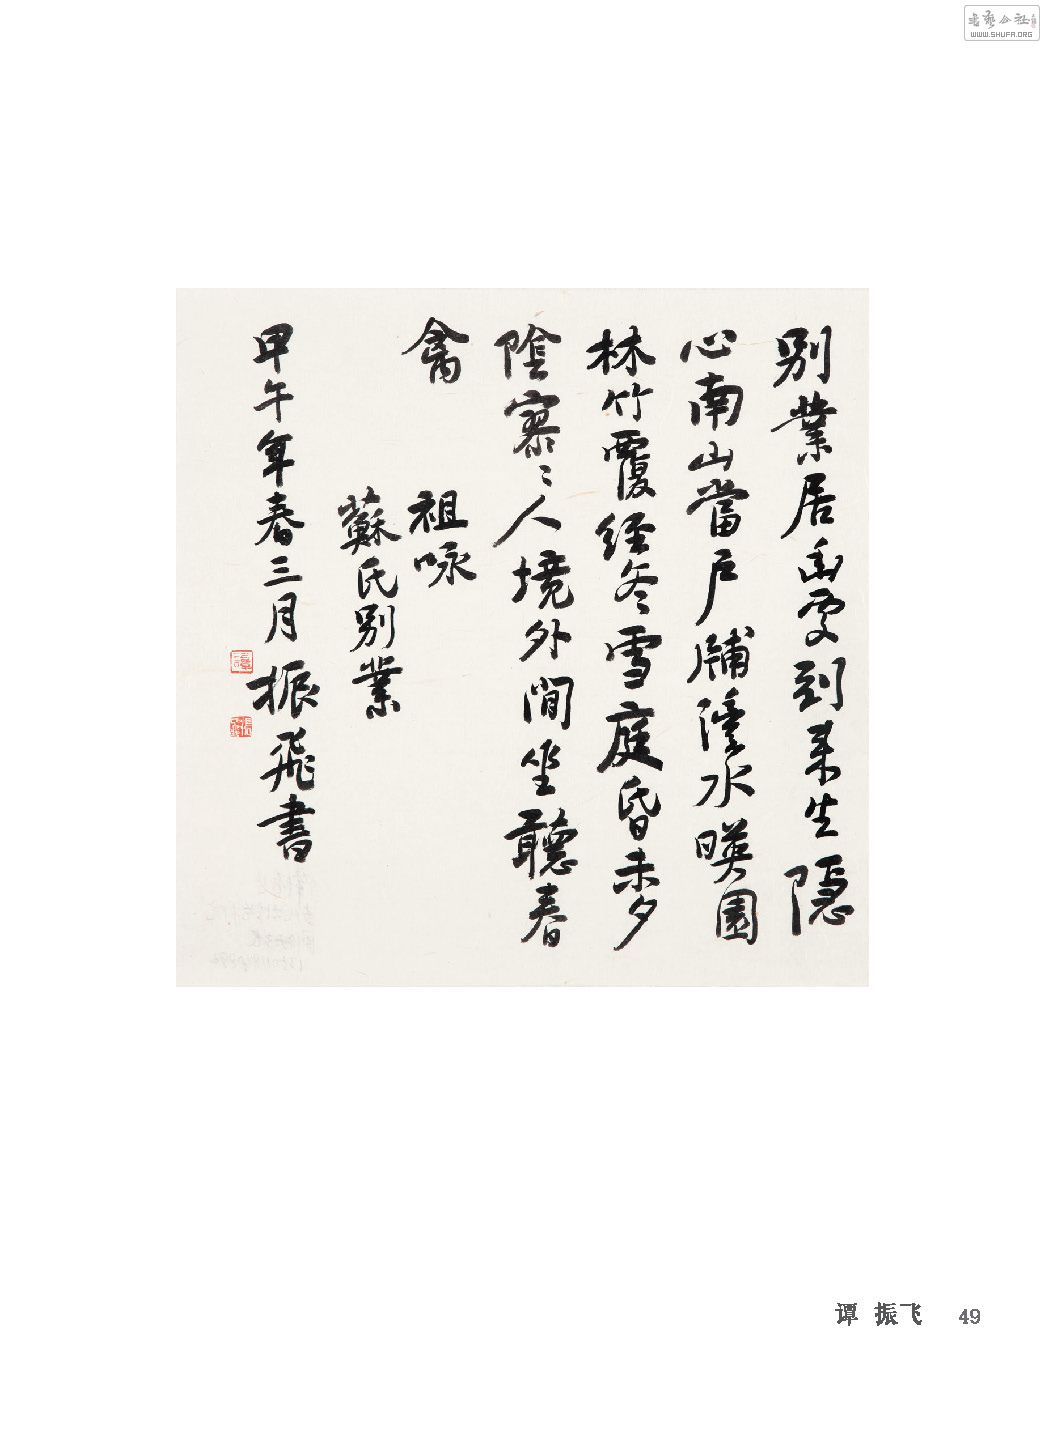 別業居幽處到来生隱
心南山當戶牖灃水暎園
林竹覆經冬雪庭昏未夕
陰寥〻人境外閒坐聽春
禽 祖咏
蘇氏別業
甲午年春三月振飛書
谭 振飞 49
书艺公社
WWW.SHUFA.ORG